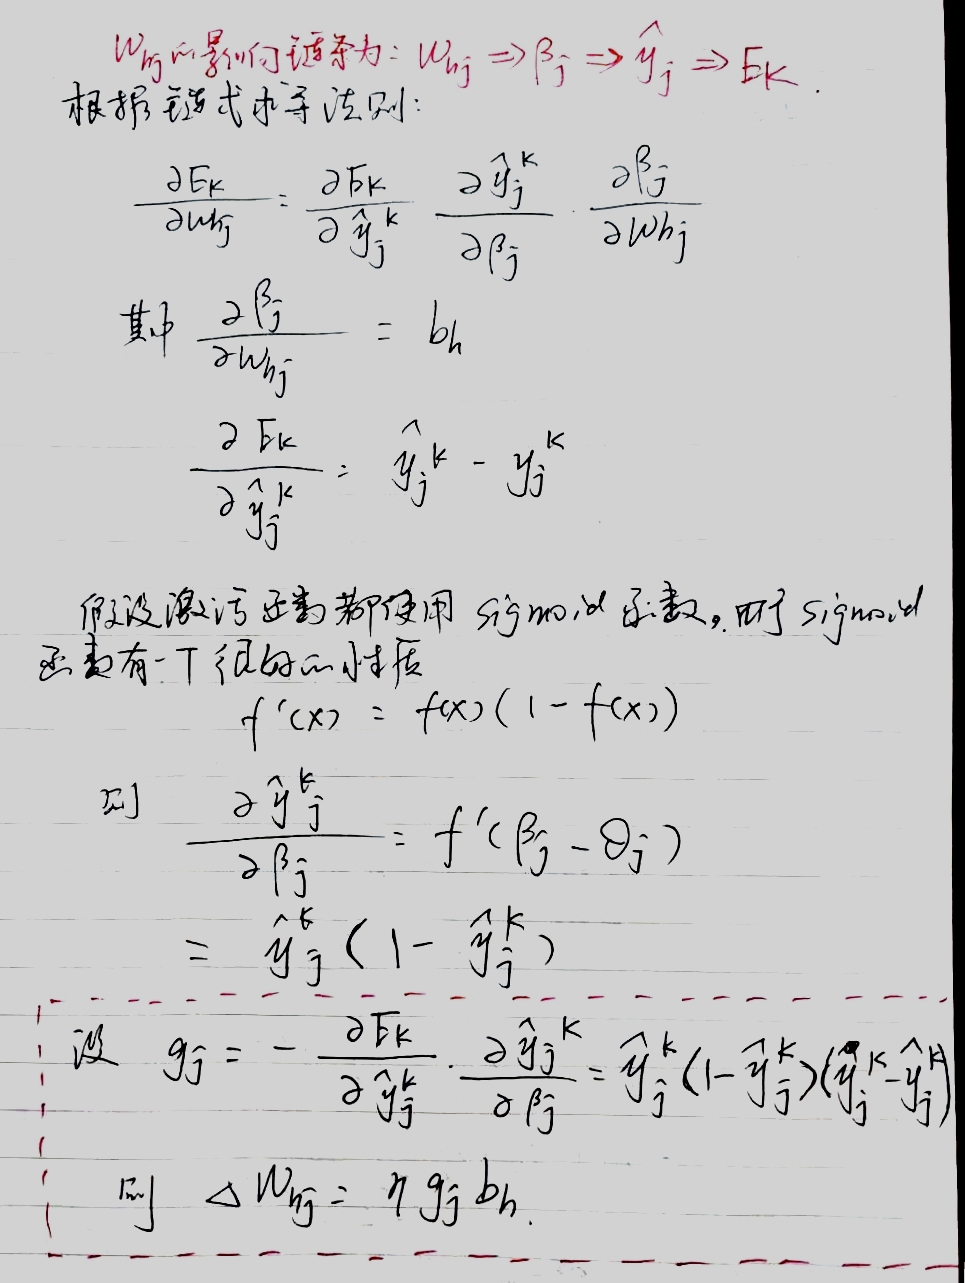 Whj的影响链条为: Whj ⇒ βj ⇒ ŷj ⇒ EK.
根据链式求导法则:
∂EK/∂whj = ∂EK/∂ŷj^k ∂ŷj^k/∂βj · ∂βj/∂Whj
其中 ∂βj/∂Whj = bh
∂EK/∂ŷj^k = ŷj^k - yj^k
假设激活函数都使用 sigmoid 函数, 由于 sigmoid
函数有一个很好的性质
f'(x) = f(x)(1-f(x))
则 ∂ŷj^k/∂βj = f'(βj - θj)
= ŷj^k (1 - ŷj^k)
设 gj = - ∂EK/∂ŷj^k · ∂ŷj^k/∂βj = ŷj^k (1-ŷj^k)(yj^k-ŷj^k)
则 △Whj = η gj bh.